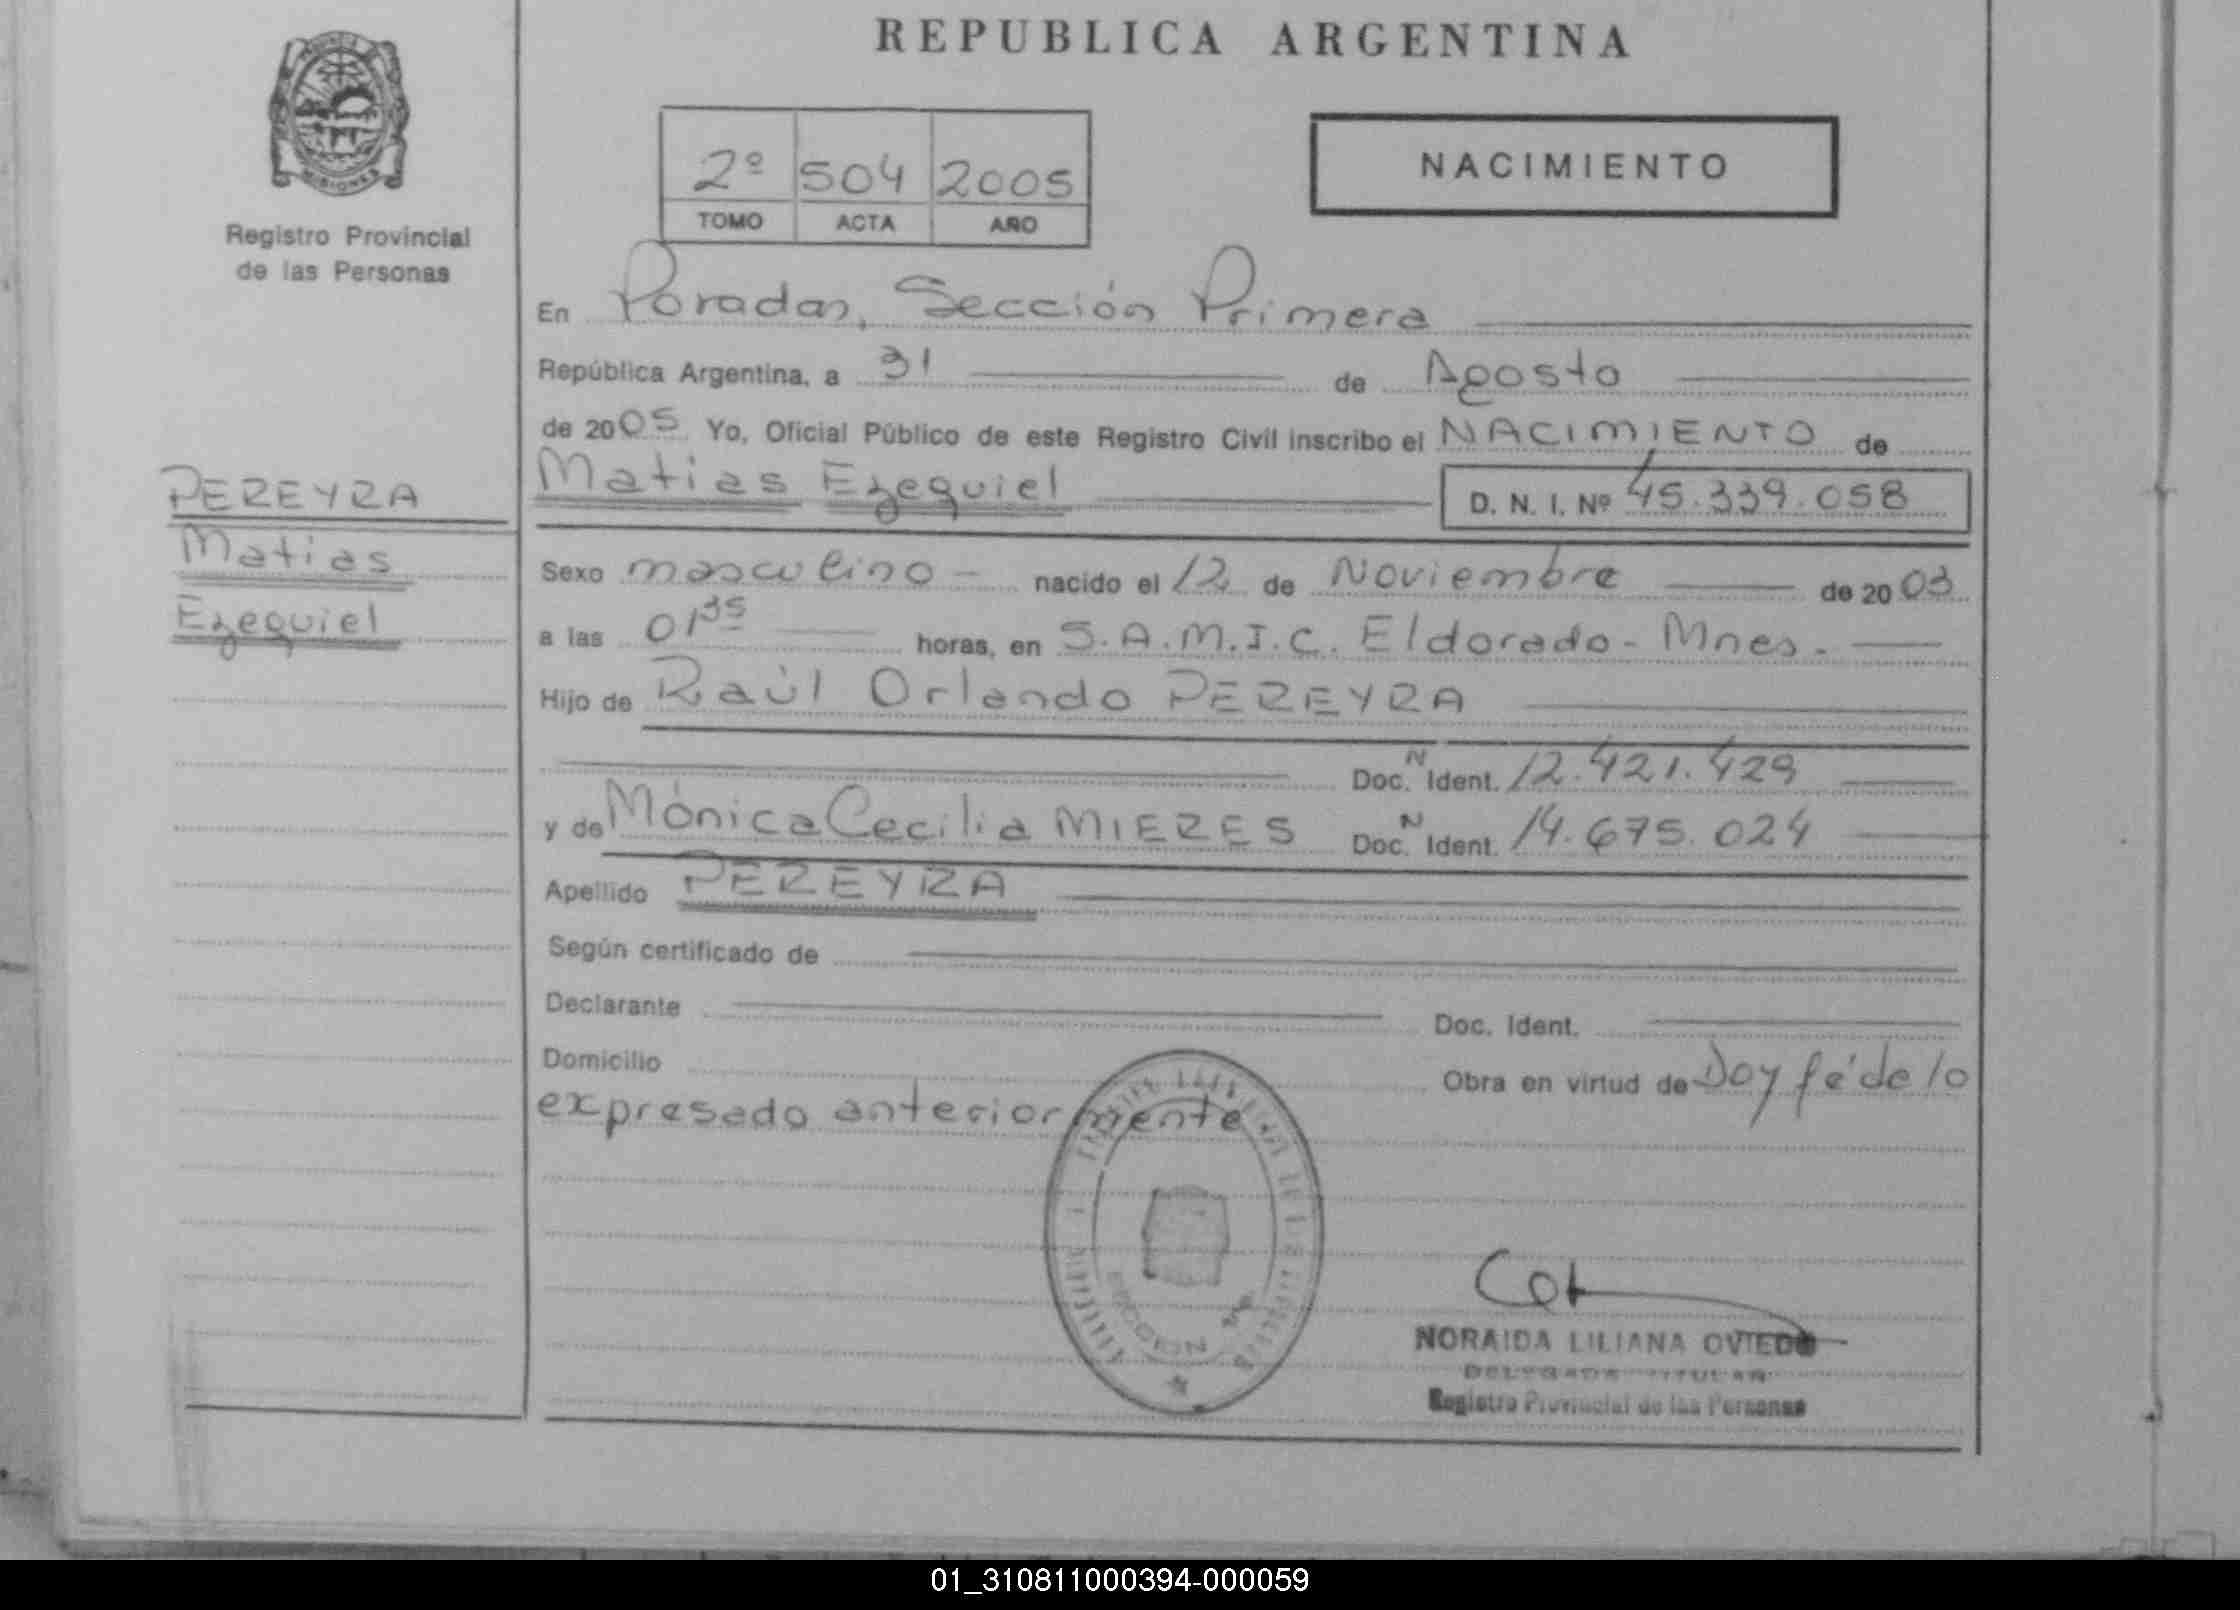 REPUBLICA ARGENTINA
MISIONES
Registro Provincial
de las Personas
2º 504 2005
TOMO ACTA AÑO
NACIMIENTO
En Posadas, Sección Primera
República Argentina, a 31 de Agosto
de 2005 Yo, Oficial Público de este Registro Civil inscribo el NACIMIENTO de
Matias Ezequiel D. N. I. Nº 45.339.058
PEREYRA
Matias
Ezequiel
Sexo masculino - nacido el 12 de Noviembre de 2003
a las 01 35 horas, en S.A.M.I.C. Eldorado - Mnes.
Hijo de Raúl Orlando PEREYRA
Doc. N Ident. 12.421.429
y de Mónica Cecilia MIERES Doc. N Ident. 14.675.024
Apellido PEREYRA
Según certificado de
Declarante Doc. Ident.
Domicilio Obra en virtud de Doy fé de lo
expresado anteriormente
NORAIDA LILIANA OVIEDO
DELEGADA TITULAR
Registro Provincial de las Personas
01_310811000394-000059